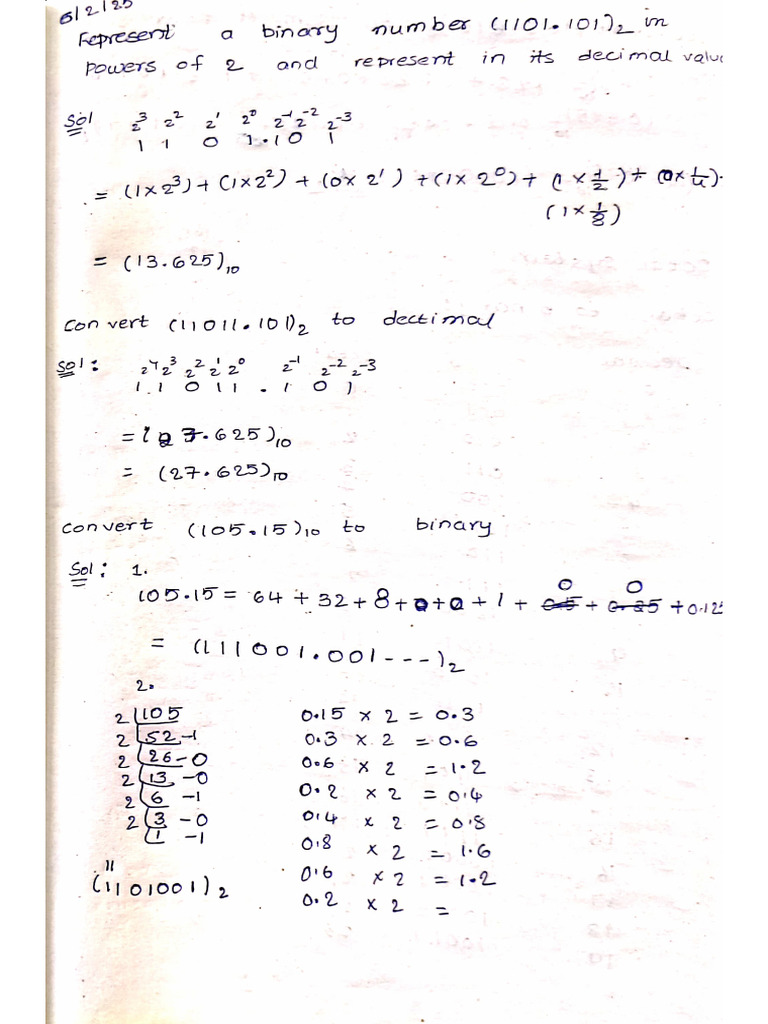 6/2/25
Represent a binary number (1101.101)₂ in
powers of 2 and represent in its decimal value
Sol 2³ 2² 2¹ 2⁰ 2⁻¹ 2⁻² 2⁻³
1 1 0 1.1 0 1
= (1×2³) + (1×2²) + (0×2¹) + (1×2⁰) + (1×1/2) + (0×1/4).
(1×1/8)
= (13.625)₁₀
convert (11011.101)₂ to dectimal
Sol: 2⁴ 2³ 2² 2¹ 2⁰ 2⁻¹ 2⁻² 2⁻³
1 1 0 1 1 . 1 0 1
.625)₁₀
= (27.625)₁₀
convert (105.15)₁₀ to binary
Sol: 1.
0 0
105.15 = 64 + 32 + 8 + 0 + 0 + 1 + 0.5 + 0.25 + 0.125
= (111001.001---)₂
2.
2 105 0.15 × 2 = 0.3
2 52 -1 0.3 × 2 = 0.6
2 26 -0 0.6 × 2 = 1.2
2 13 -0 0.2 × 2 = 0.4
2 6 -1 0.4 × 2 = 0.8
2 3 -0 0.8 × 2 = 1.6
1 -1 0.6 × 2 = 1.2
0.2 × 2 =
11
(1101001)₂